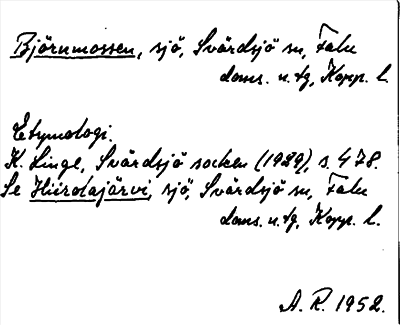 Björnmossen, sjö, Svärdsjö sn, Falu
doms. o. tg, Kopp. l.
Etymologi.
K. Linge, Svärdsjö socken (1929), s. 478.
Se Hiirolajärvi, sjö, Svärdsjö sn, Falu
doms. o. tg, Kopp. l.
A. R. 1952.